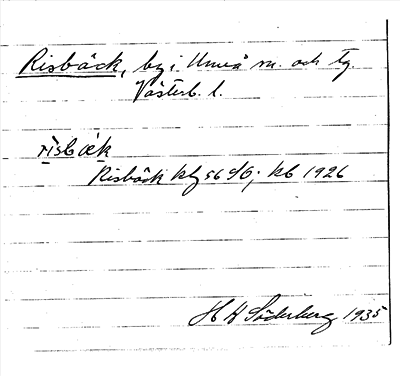 Risbäck, by i Umeå sn. och tg.
Västerb. l.
risbæk
Risbäck kb 1926
H Söderberg 1935